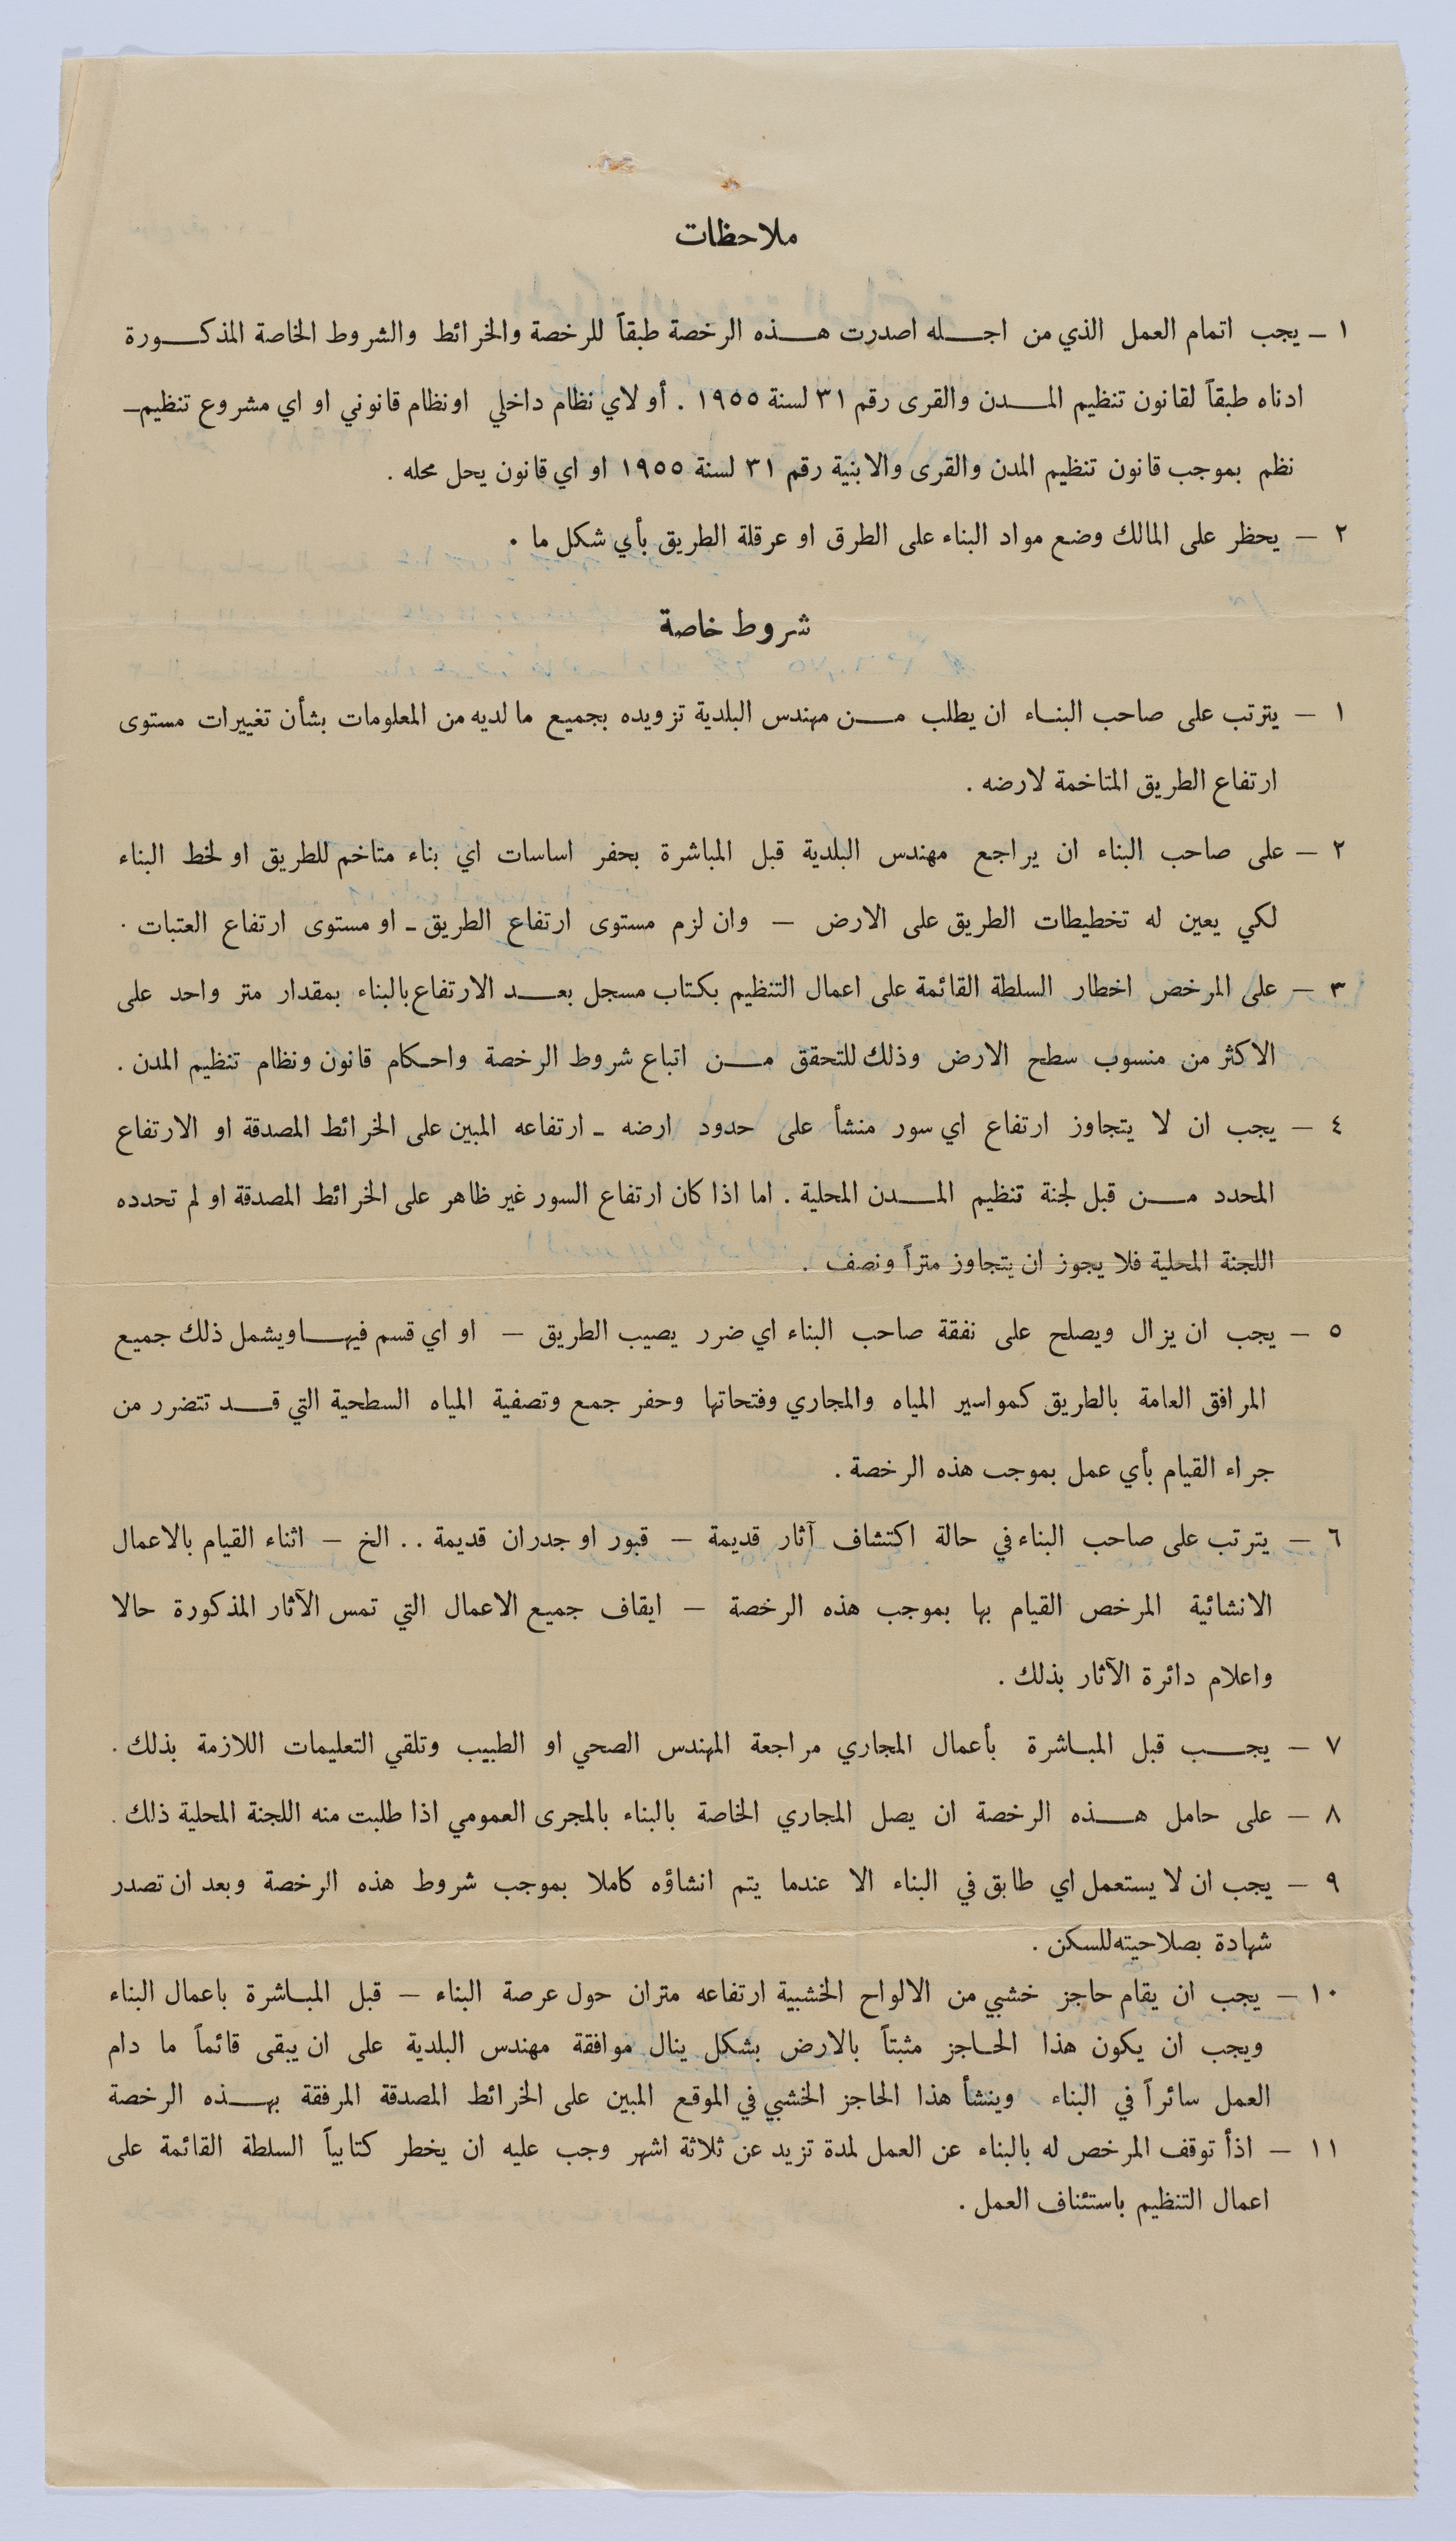 ملاحظات
١ ـ يجب اتمام العمل الذي من اجله اصدرت هذه الرخصة طبقاً للرخصة والخرائط والشروط الخاصة المذكورة
ادناه طبقاً لقانون تنظيم المدن والقرى رقم ٣١ لسنة ١٩٥٥ . أو لاي نظام داخلي اونظام قانوني او اي مشروع تنظيم
نظم بموجب قانون تنظيم المدن والقرى والابنية رقم ٣١ لسنة ١٩٥٥ او اي قانون يحل محله .
٢ – يحظر على المالك وضع مواد البناء على الطرق او عرقلة الطريق بأي شكل ما .
شروط خاصة
١ – يترتب على صاحب البناء ان يطلب من مهندس البلدية تزويده بجميع ما لديه من المعلومات بشأن تغييرات مستوى
ارتفاع الطريق المتاخمة لارضه .
٢ – على صاحب البناء ان يراجع مهندس البلدية قبل المباشرة بحفر اساسات اي بناء متاخم للطريق او لخط البناء
لكي يعين له تخطيطات الطريق على الارض – وان لزم مستوى ارتفاع الطريق ـ او مستوى ارتفاع العتبات .
٣ – على المرخص اخطار السلطة القائمة على اعمال التنظيم بكتاب مسجل بعد الارتفاع بالبناء بمقدار متر واحد على
الاكثر من منسوب سطح الارض وذلك للتحقق من اتباع شروط الرخصة واحكام قانون ونظام تنظيم المدن .
٤ – يجب ان لا يتجاوز ارتفاع اي سور منشأ على حدود ارضه ـ ارتفاعه المبين على الخرائط المصدقة او الارتفاع
المحدد من قبل لجنة تنظيم المدن المحلية . اما اذا كان ارتفاع السور غير ظاهر على الخرائط المصدقة او لم تحدده
اللجنة المحلية فلا يجوز ان يتجاوز متراً ونصف .
٥ – يجب ان يزال ويصلح على نفقة صاحب البناء اي ضرر يصيب الطريق – او اي قسم فيها ويشمل ذلك جميع
المرافق العامة بالطريق كمواسير المياه والمجاري وفتحاتها وحفر جمع وتصفية المياه السطحية التي قد تتضرر من
جراء القيام بأي عمل بموجب هذه الرخصة .
٦ – يترتب على صاحب البناء في حالة اكتشاف آثار قديمة – قبور او جدران قديمة .. الخ – اثناء القيام بالاعمال
الانشائية المرخص القيام بها بموجب هذه الرخصة – ايقاف جميع الاعمال التي تمس الآثار المذكورة حالا
واعلام دائرة الآثار بذلك .
٧ – يجب قبل المباشرة بأعمال المجاري مراجعة المهندس الصحي او الطبيب وتلقي التعليمات اللازمة بذلك .
٨ – على حامل هذه الرخصة ان يصل المجاري الخاصة بالبناء بالمجرى العمومي اذا طلبت منه اللجنة المحلية ذلك .
٩ – يجب ان لا يستعمل اي طابق في البناء الا عندما يتم انشاؤه كاملا بموجب شروط هذه الرخصة وبعد ان تصدر
شهادة بصلاحيته للسكن .
١٠ – يجب ان يقام حاجز خشبي من الالواح الخشبية ارتفاعه متران حول عرصة البناء – قبل المباشرة باعمال البناء
ويجب ان يكون هذا الحاجز مثبتاً بالارض بشكل ينال موافقة مهندس البلدية على ان يبقى قائماً ما دام
العمل سائراً في البناء وينشأ هذا الحاجز الخشبي في الموقع المبين على الخرائط المصدقة المرفقة بهذه الرخصة
١١ – اذأ توقف المرخص له بالبناء عن العمل لمدة تزيد عن ثلاثة اشهر وجب عليه ان يخطر كتابياً السلطة القائمة على
اعمال التنظيم باستئناف العمل .